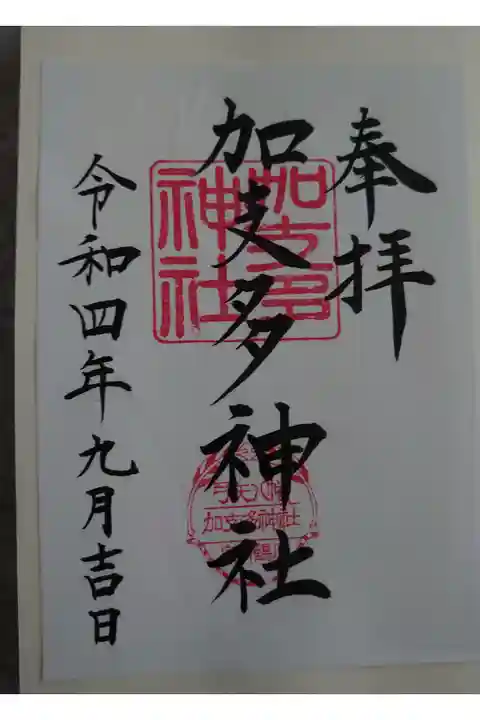 奉拝
加支多神社
加支多神社
弓矢八幡
加支多神社
令和四年九月吉日